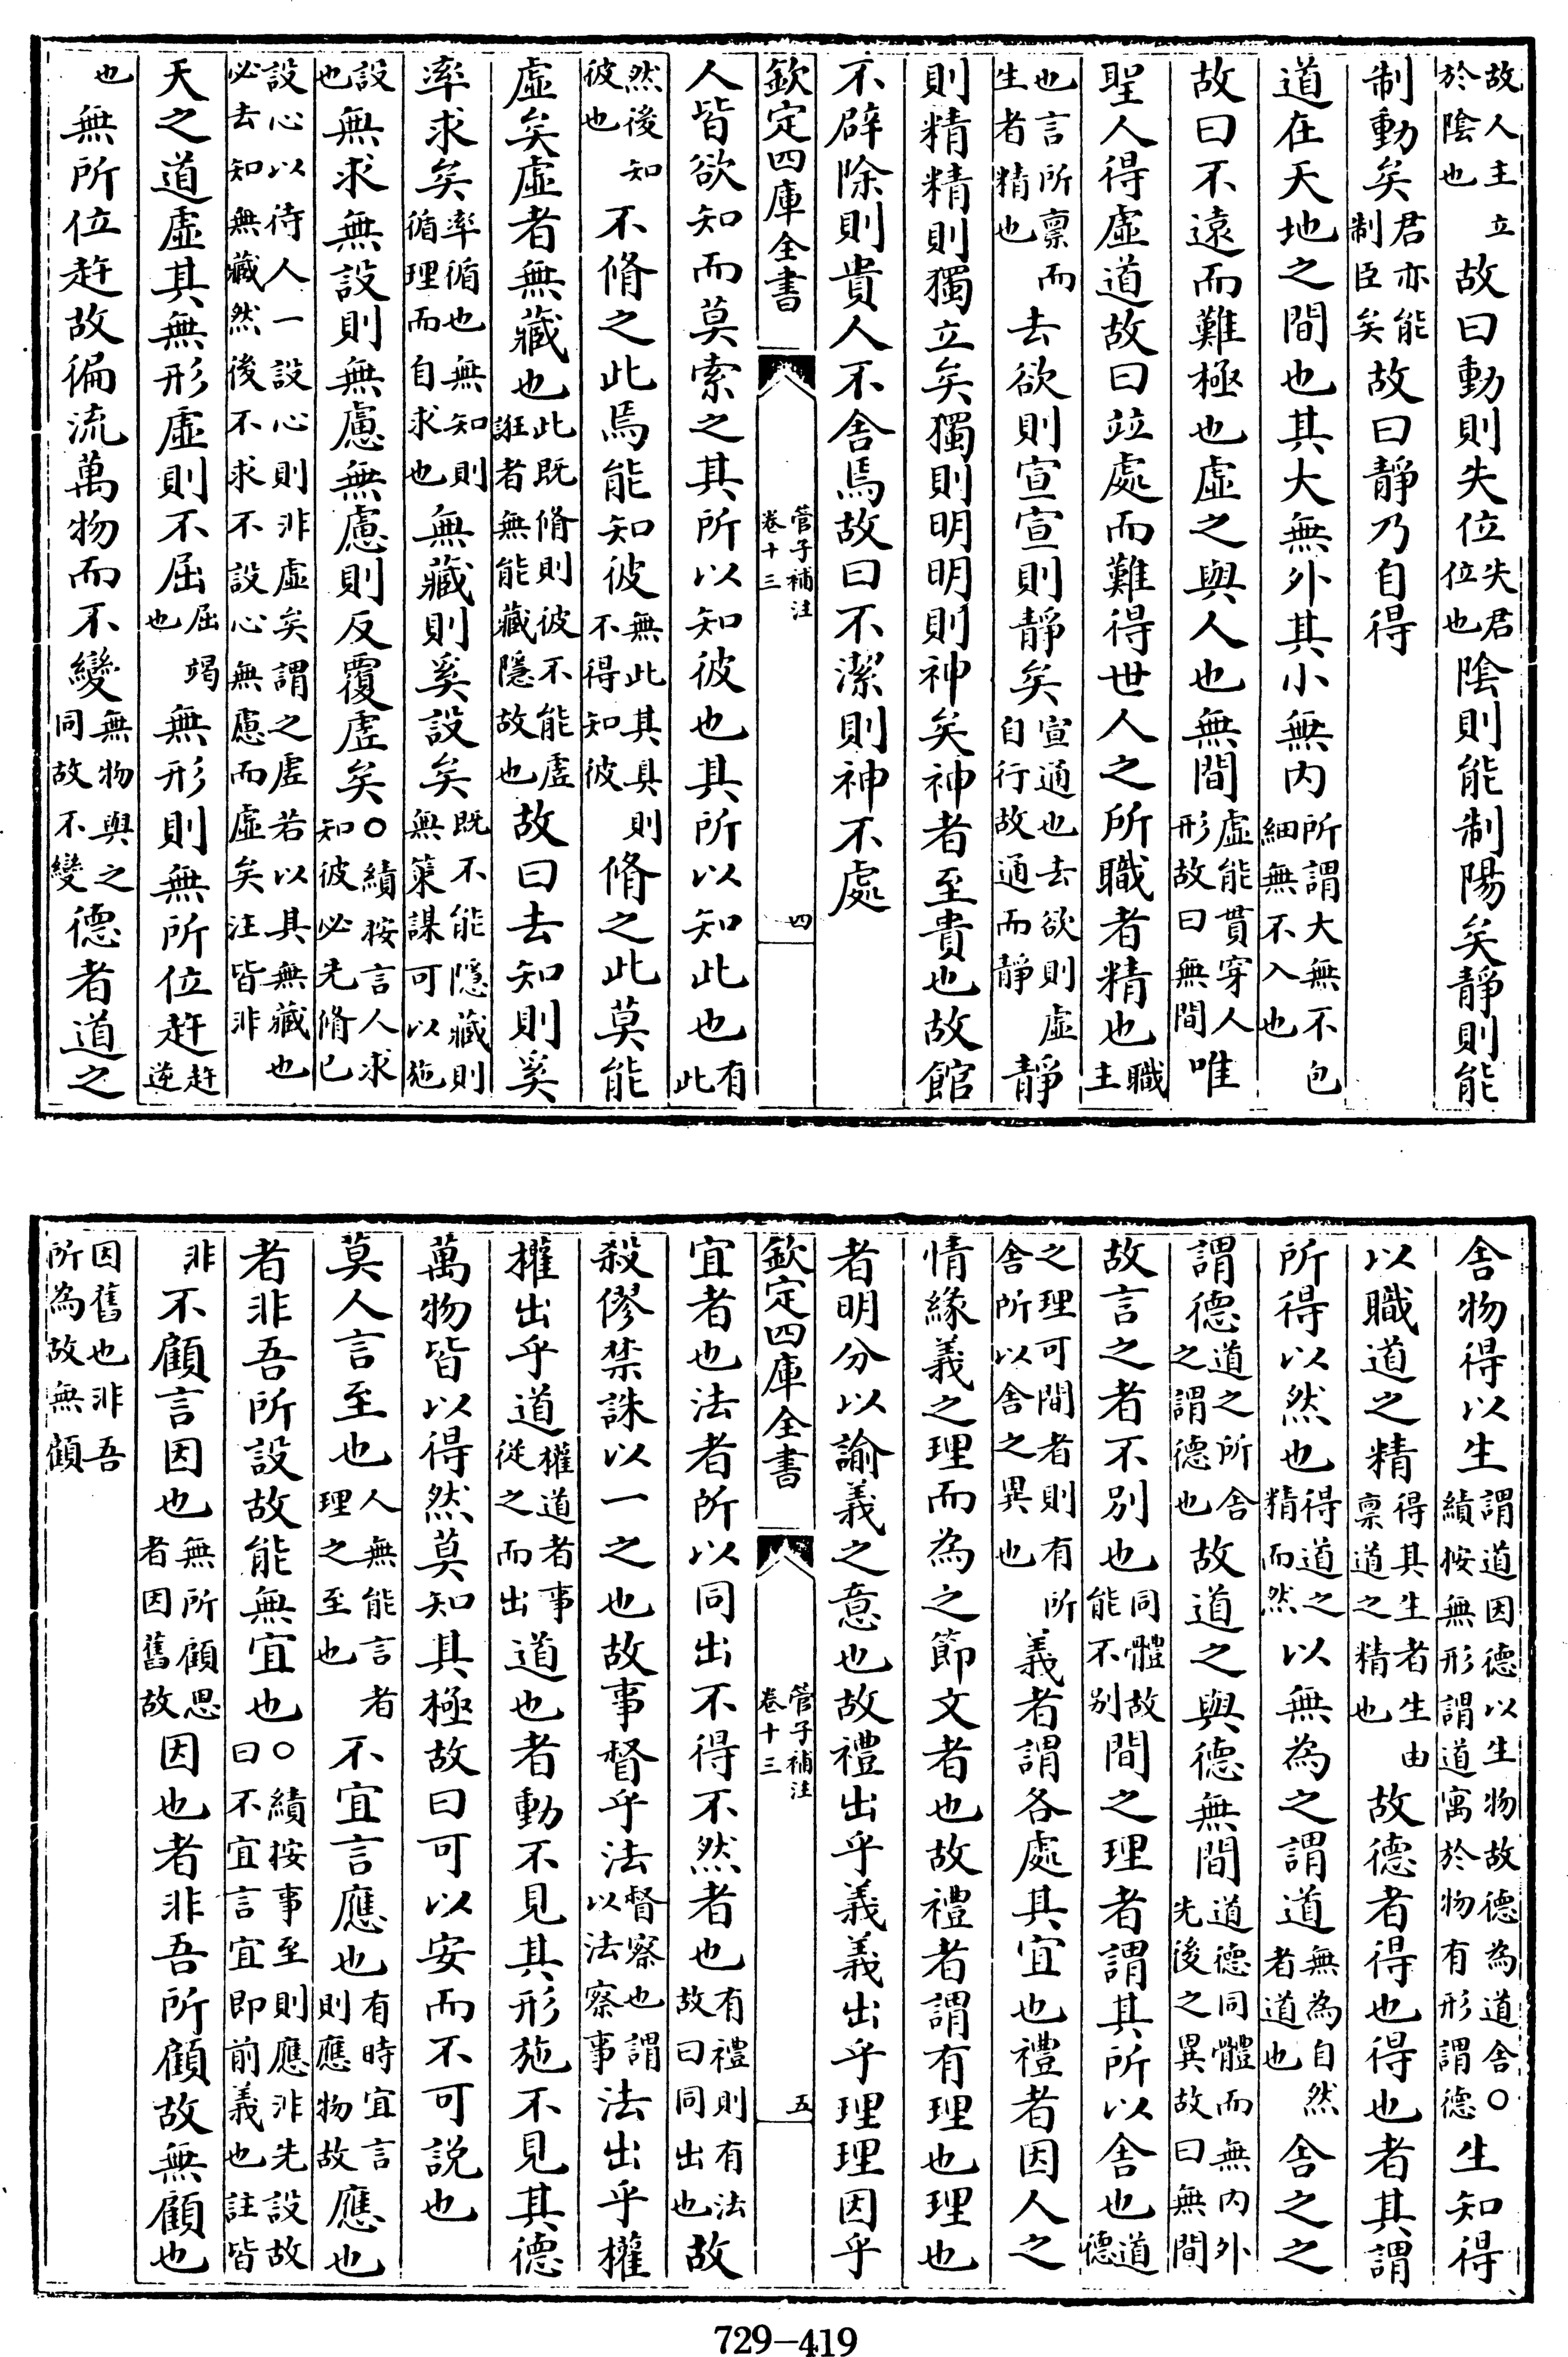 故人主立於陰也故曰動則失位失君位也陰則能制陽矣靜則能
制動矣君亦能制臣矣故曰靜乃自得
道在天地之間也其大無外其小無内所謂大無不包細無不入也
故曰不遠而難極也虛之與人也無間虛能貫穿人形故曰無間唯
聖人得虛道故曰竝處而難得世人之所職者精也職主
也言所稟而生者精也去欲則宣宣則靜矣宣通也去欲則虛自行故通而靜靜
則精精則獨立矣獨則明明則神矣神者至貴也故館
不辟除則貴人不舍焉故曰不潔則神不處
欽定四庫全書 管子補注 卷十三 四
人皆欲知而莫索之其所以知彼也其所以知此也有此
然後知彼也不脩之此焉能知彼無此其具則不得知彼脩之此莫能
虛矣虛者無藏也此既脩則彼不能虛誑者無能藏隱故也故曰去知則奚
率求矣率循也無知則循理而自求也無藏則奚設矣既不能隱藏則無策謀可以施
設也無求無設則無慮無慮則反覆虛矣○績按言人求知彼必先脩已
設心以待人一設心則非虛矣謂之虛若以其無藏也必去知無藏然後不求不設心無慮而虛矣注皆非
天之道虛其無形虛則不屈屈竭也無形則無所位赶赶逆
也無所位赶故徧流萬物而不變無物與之同故不變德者道之
舍物得以生謂道因德以生物故德為道舍○績按無形謂道寓於物有形謂德生知得
以職道之精得其生者生由稟道之精也故德者得也得也者其謂
所得以然也得道之精而然以無為之謂道無為自然者道也舍之之
謂德道之所舍之謂德也故道之與德無間道德同體而無内外先後之異故曰無間
故言之者不别也同體故能不别間之理者謂其所以舍也道德
之理可間者則有所舍所以舍之異也義者謂各處其宜也禮者因人之
情緣義之理而為之節文者也故禮者謂有理也理也
者明分以諭義之意也故禮出乎義義出乎理理因乎
欽定四庫全書 管子補注 卷十三 五
宜者也法者所以同出不得不然者也有禮則有法故曰同出也故
殺僇禁誅以一之也故事督乎法督察也謂以法察事法出乎權
權出乎道權道者事從之而出道也者動不見其形施不見其德
萬物皆以得然莫知其極故曰可以安而不可說也
莫人言至也人無能言者理之至也不宜言應也有時宜言則應物故應也
者非吾所設故能無宜也○績按事至則應非先設故曰不宜言宜即前義也註皆
非不顧言因也無所顧思者因舊故因也者非吾所顧故無顧也
因舊也非吾所為故無顧
729-419